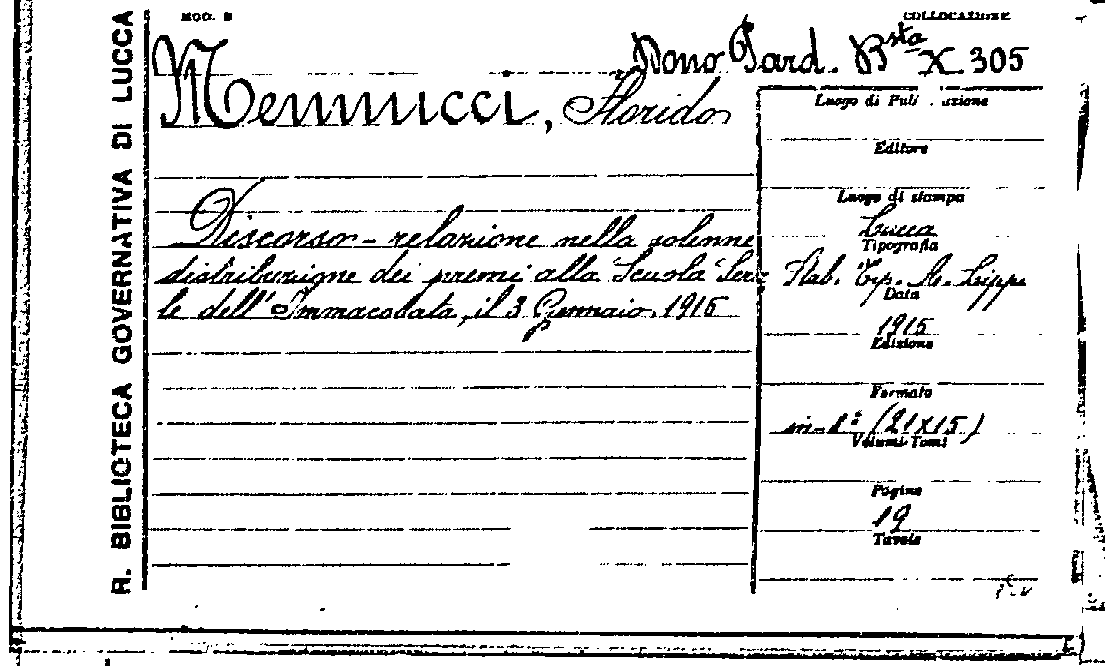 MOD. B
COLLOCAZIONE
Dono Pard. Bsta X. 305
Mennucci, Florido
Discorso - relazione nella solenne
distribuzione dei premi alla Scuola Sera-
le dell'Immacolata, il 3 Gennaio 1915
R. BIBLIOTECA GOVERNATIVA DI LUCCA
Luogo di Pubblicazione
Editore
Luogo di stampa
Lucca
Tipografia
Stab. Tip. A. Lippi
Data
1915
Edizione
Formato
in-8° (21x15)
Volumi-Tomi
Pagine
19
Tavole